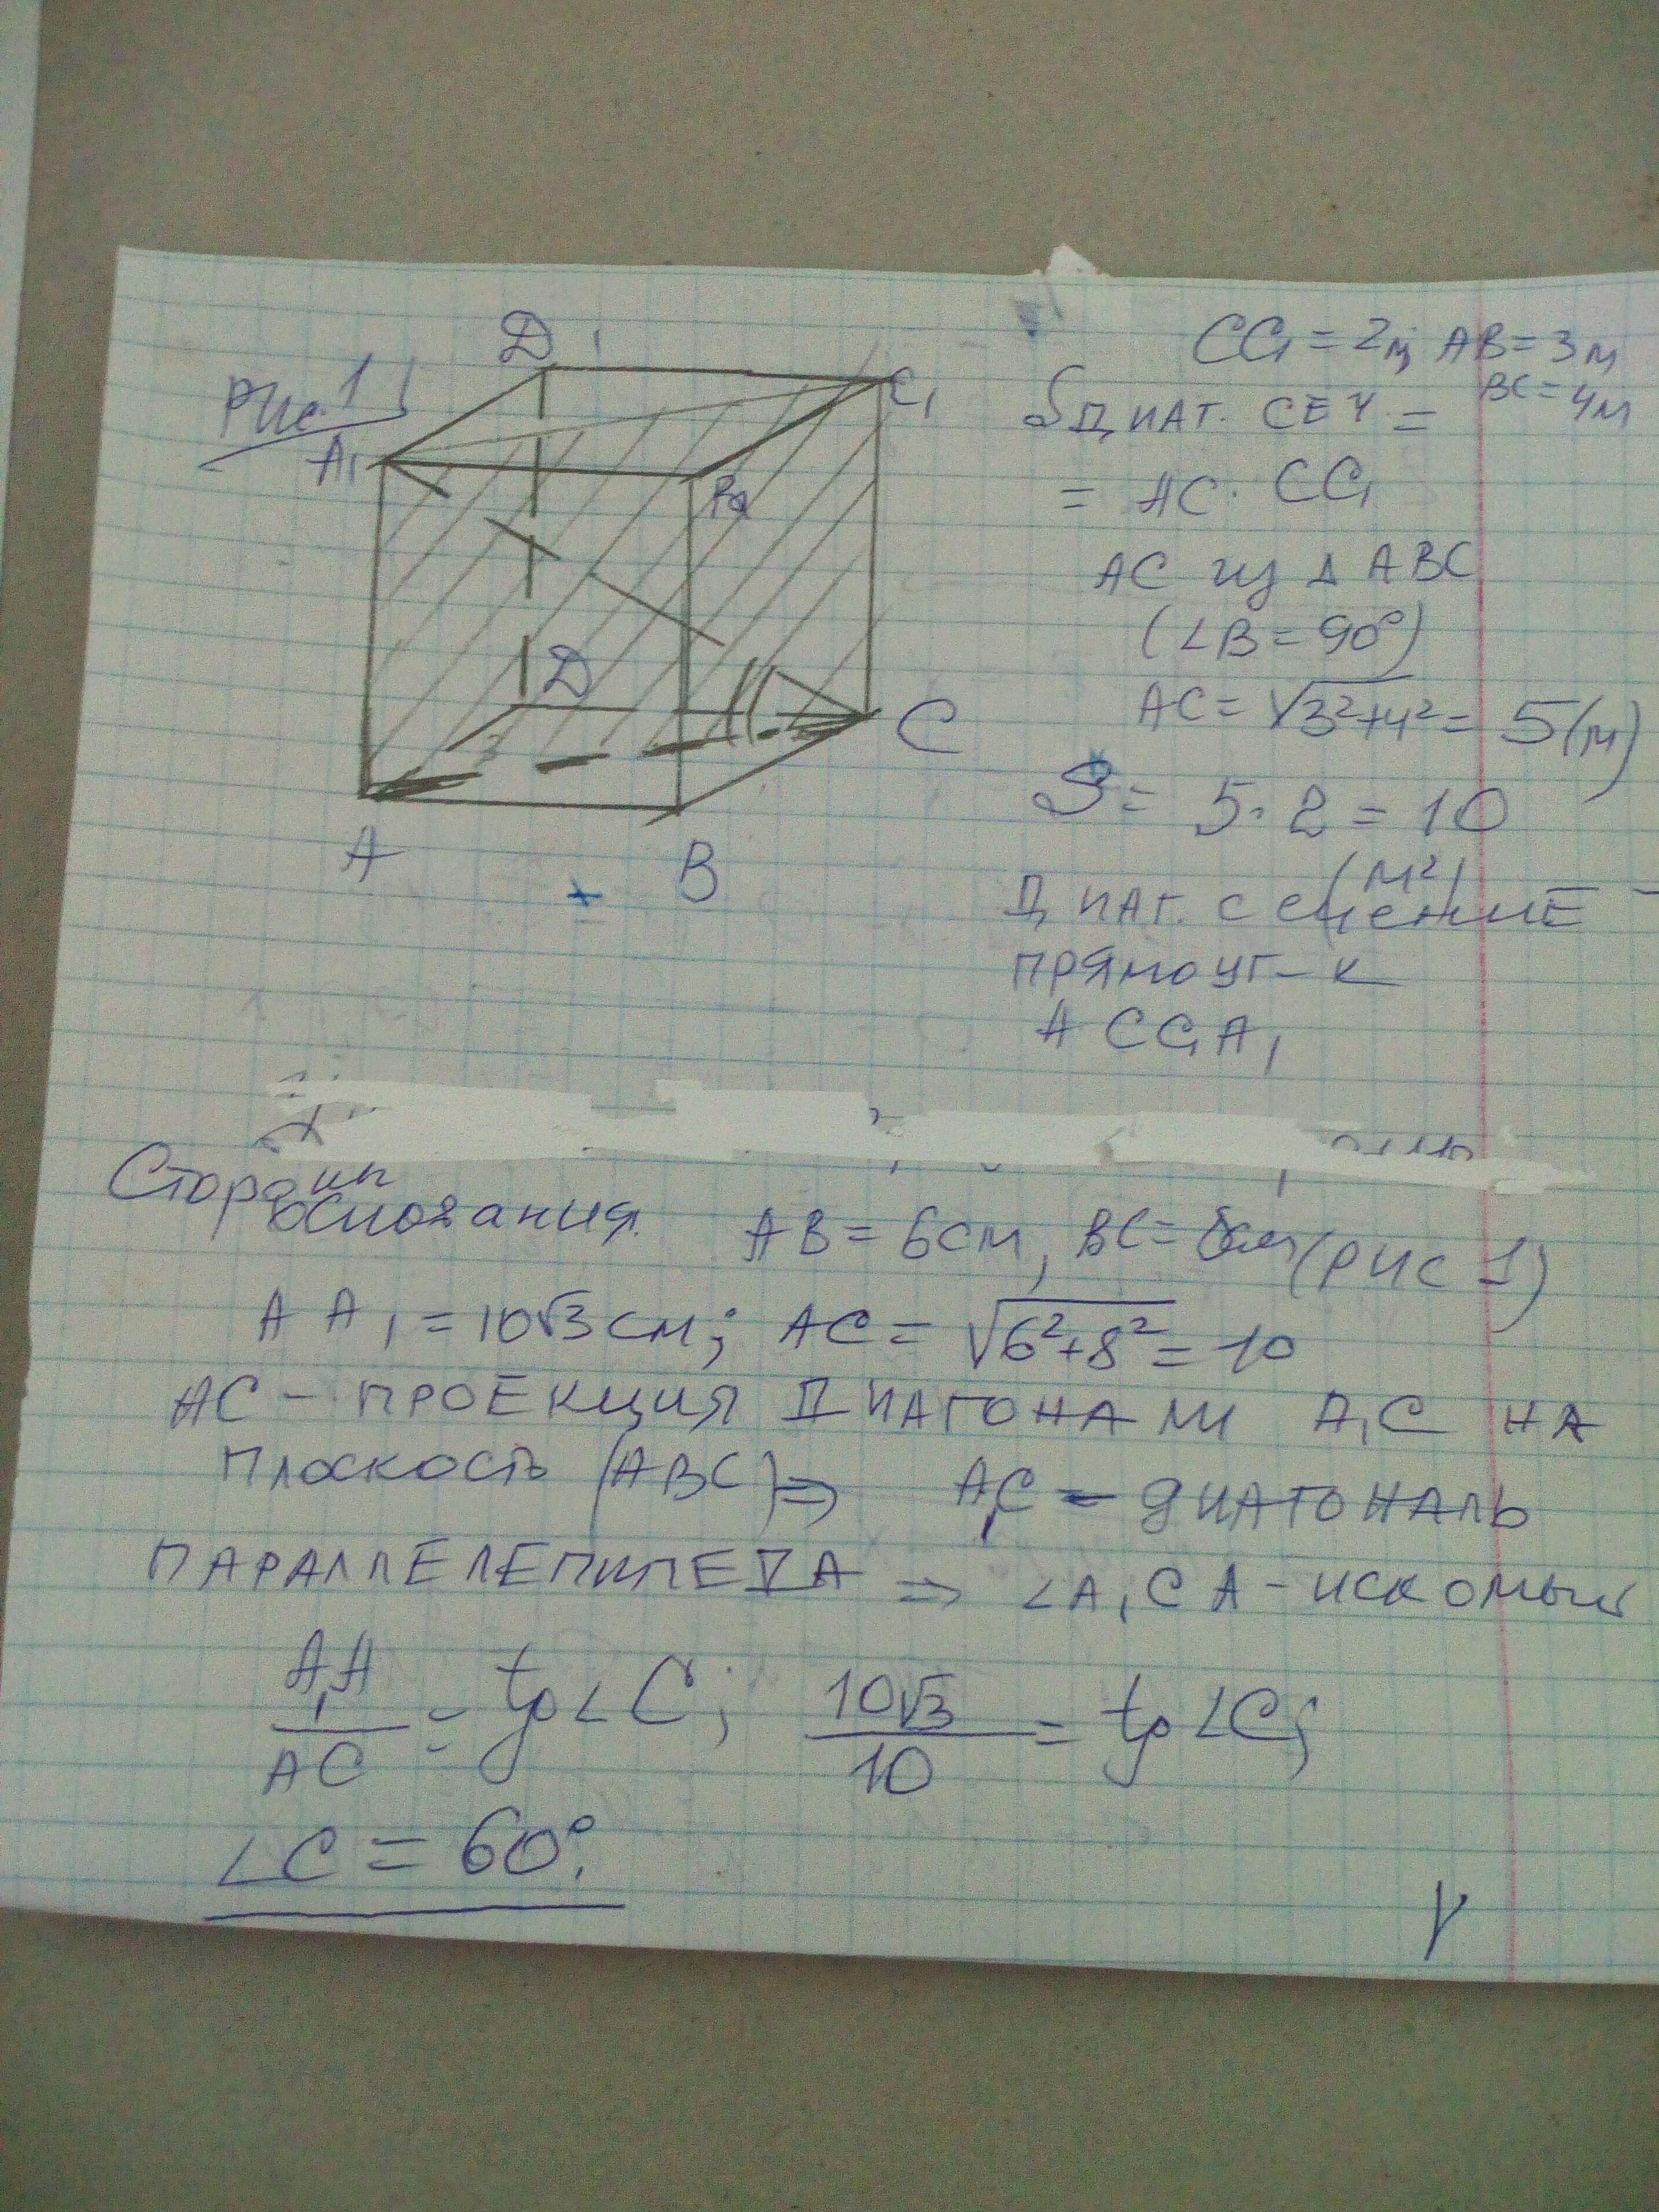 Рис. 1
D1
A1
C1
D
C
A
B
CC1 = 2м, AB = 3м
BC = 4м
Sдиаг. сеч =
= AC · CC1
AC из Δ ABC
(∠B = 90°)
AC = √3²+4² = 5(м)
S = 5 · 2 = 10
(м²)
Диаг. сечение –
прямоуг-к
ACC1A1
Стороны
основания. AB = 6см, BC = 8см (рис 1)
AA1 = 10√3 см; AC = √6²+8² = 10
AC – проекция диагонали A1C на
плоскость (ABC) ⇒ A1C – диагональ
параллелепипеда ⇒ ∠A1CA – искомый
A1A/AC = tg∠C; 10√3/10 = tg∠C;
∠C = 60°.